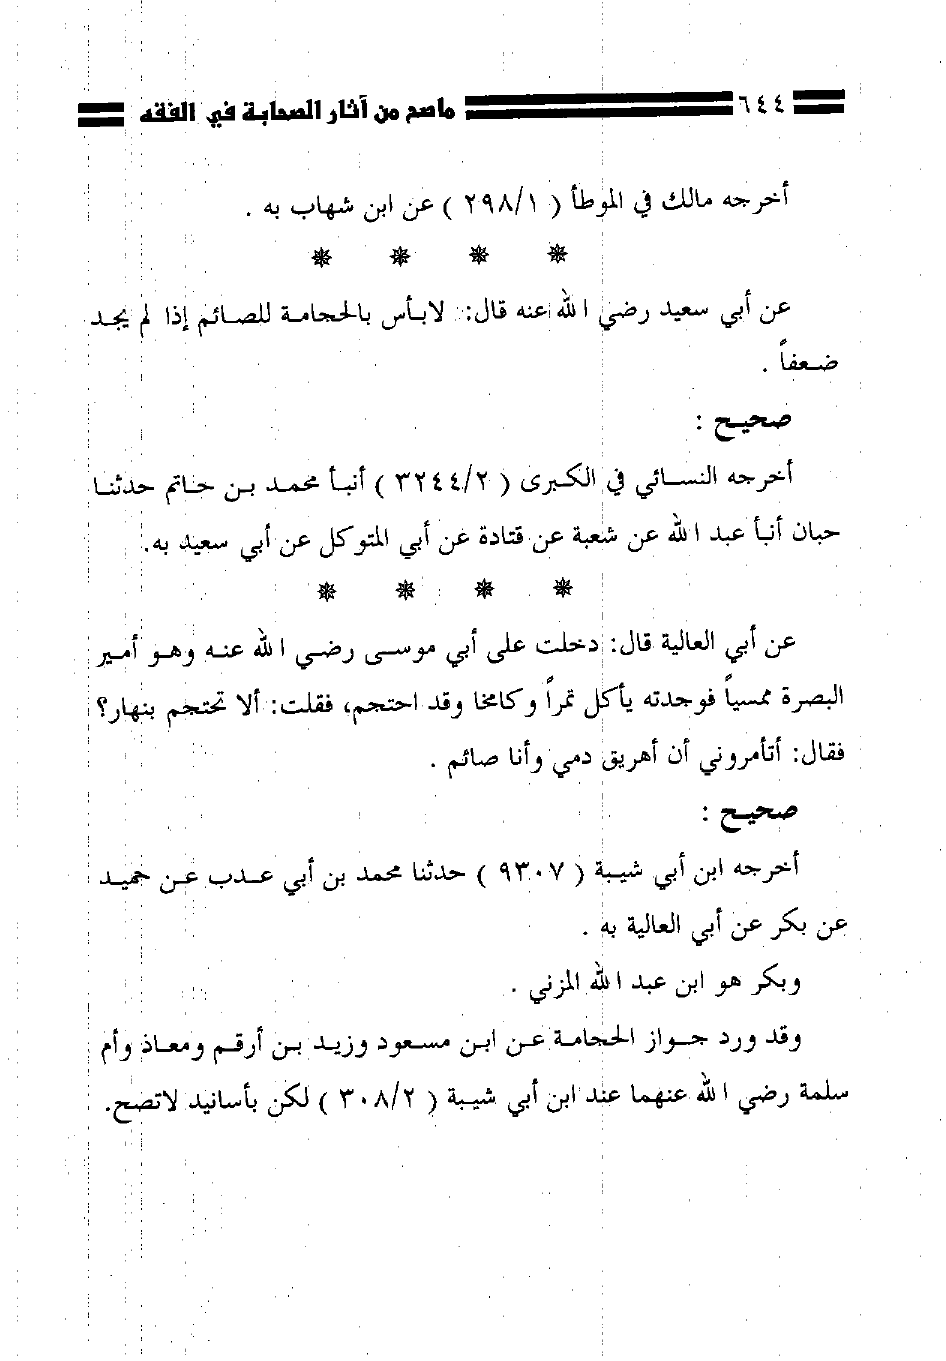 ٦٤٤ ماصح من آثار الصحابة في الفقه
أخرجه مالك في الموطأ ( ٢٩٨/١ ) عن ابن شهاب به .
عن أبي سعيد رضي الله عنه قال: لابأس بالحجامة للصائم إذا لم يجد
ضعفاً .
صحيح :
أخرجه النسائي في الكبرى ( ٣٢٤٤/٢ ) أنبأ محمد بن حاتم حدثنا
حبان أنبأ عبد الله عن شعبة عن قتادة عن أبي المتوكل عن أبي سعيد به.
عن أبي العالية قال: دخلت على أبي موسى رضي الله عنه وهو أمير
البصرة ممسياً فوجدته يأكل تمراً وكامخا وقد احتجم، فقلت: ألا تحتجم بنهار؟
فقال: أتأمروني أن أهريق دمي وأنا صائم .
صحيح :
أخرجه ابن أبي شيبة ( ٩٣٠٧ ) حدثنا محمد بن أبي عدب عن حميد
عن بكر عن أبي العالية به .
وبكر هو ابن عبد الله المزني .
وقد ورد جواز الحجامة عن ابن مسعود وزيد بن أرقم ومعاذ وأم
سلمة رضي الله عنهما عند ابن أبي شيبة ( ٣٠٨/٢ ) لكن بأسانيد لاتصح.